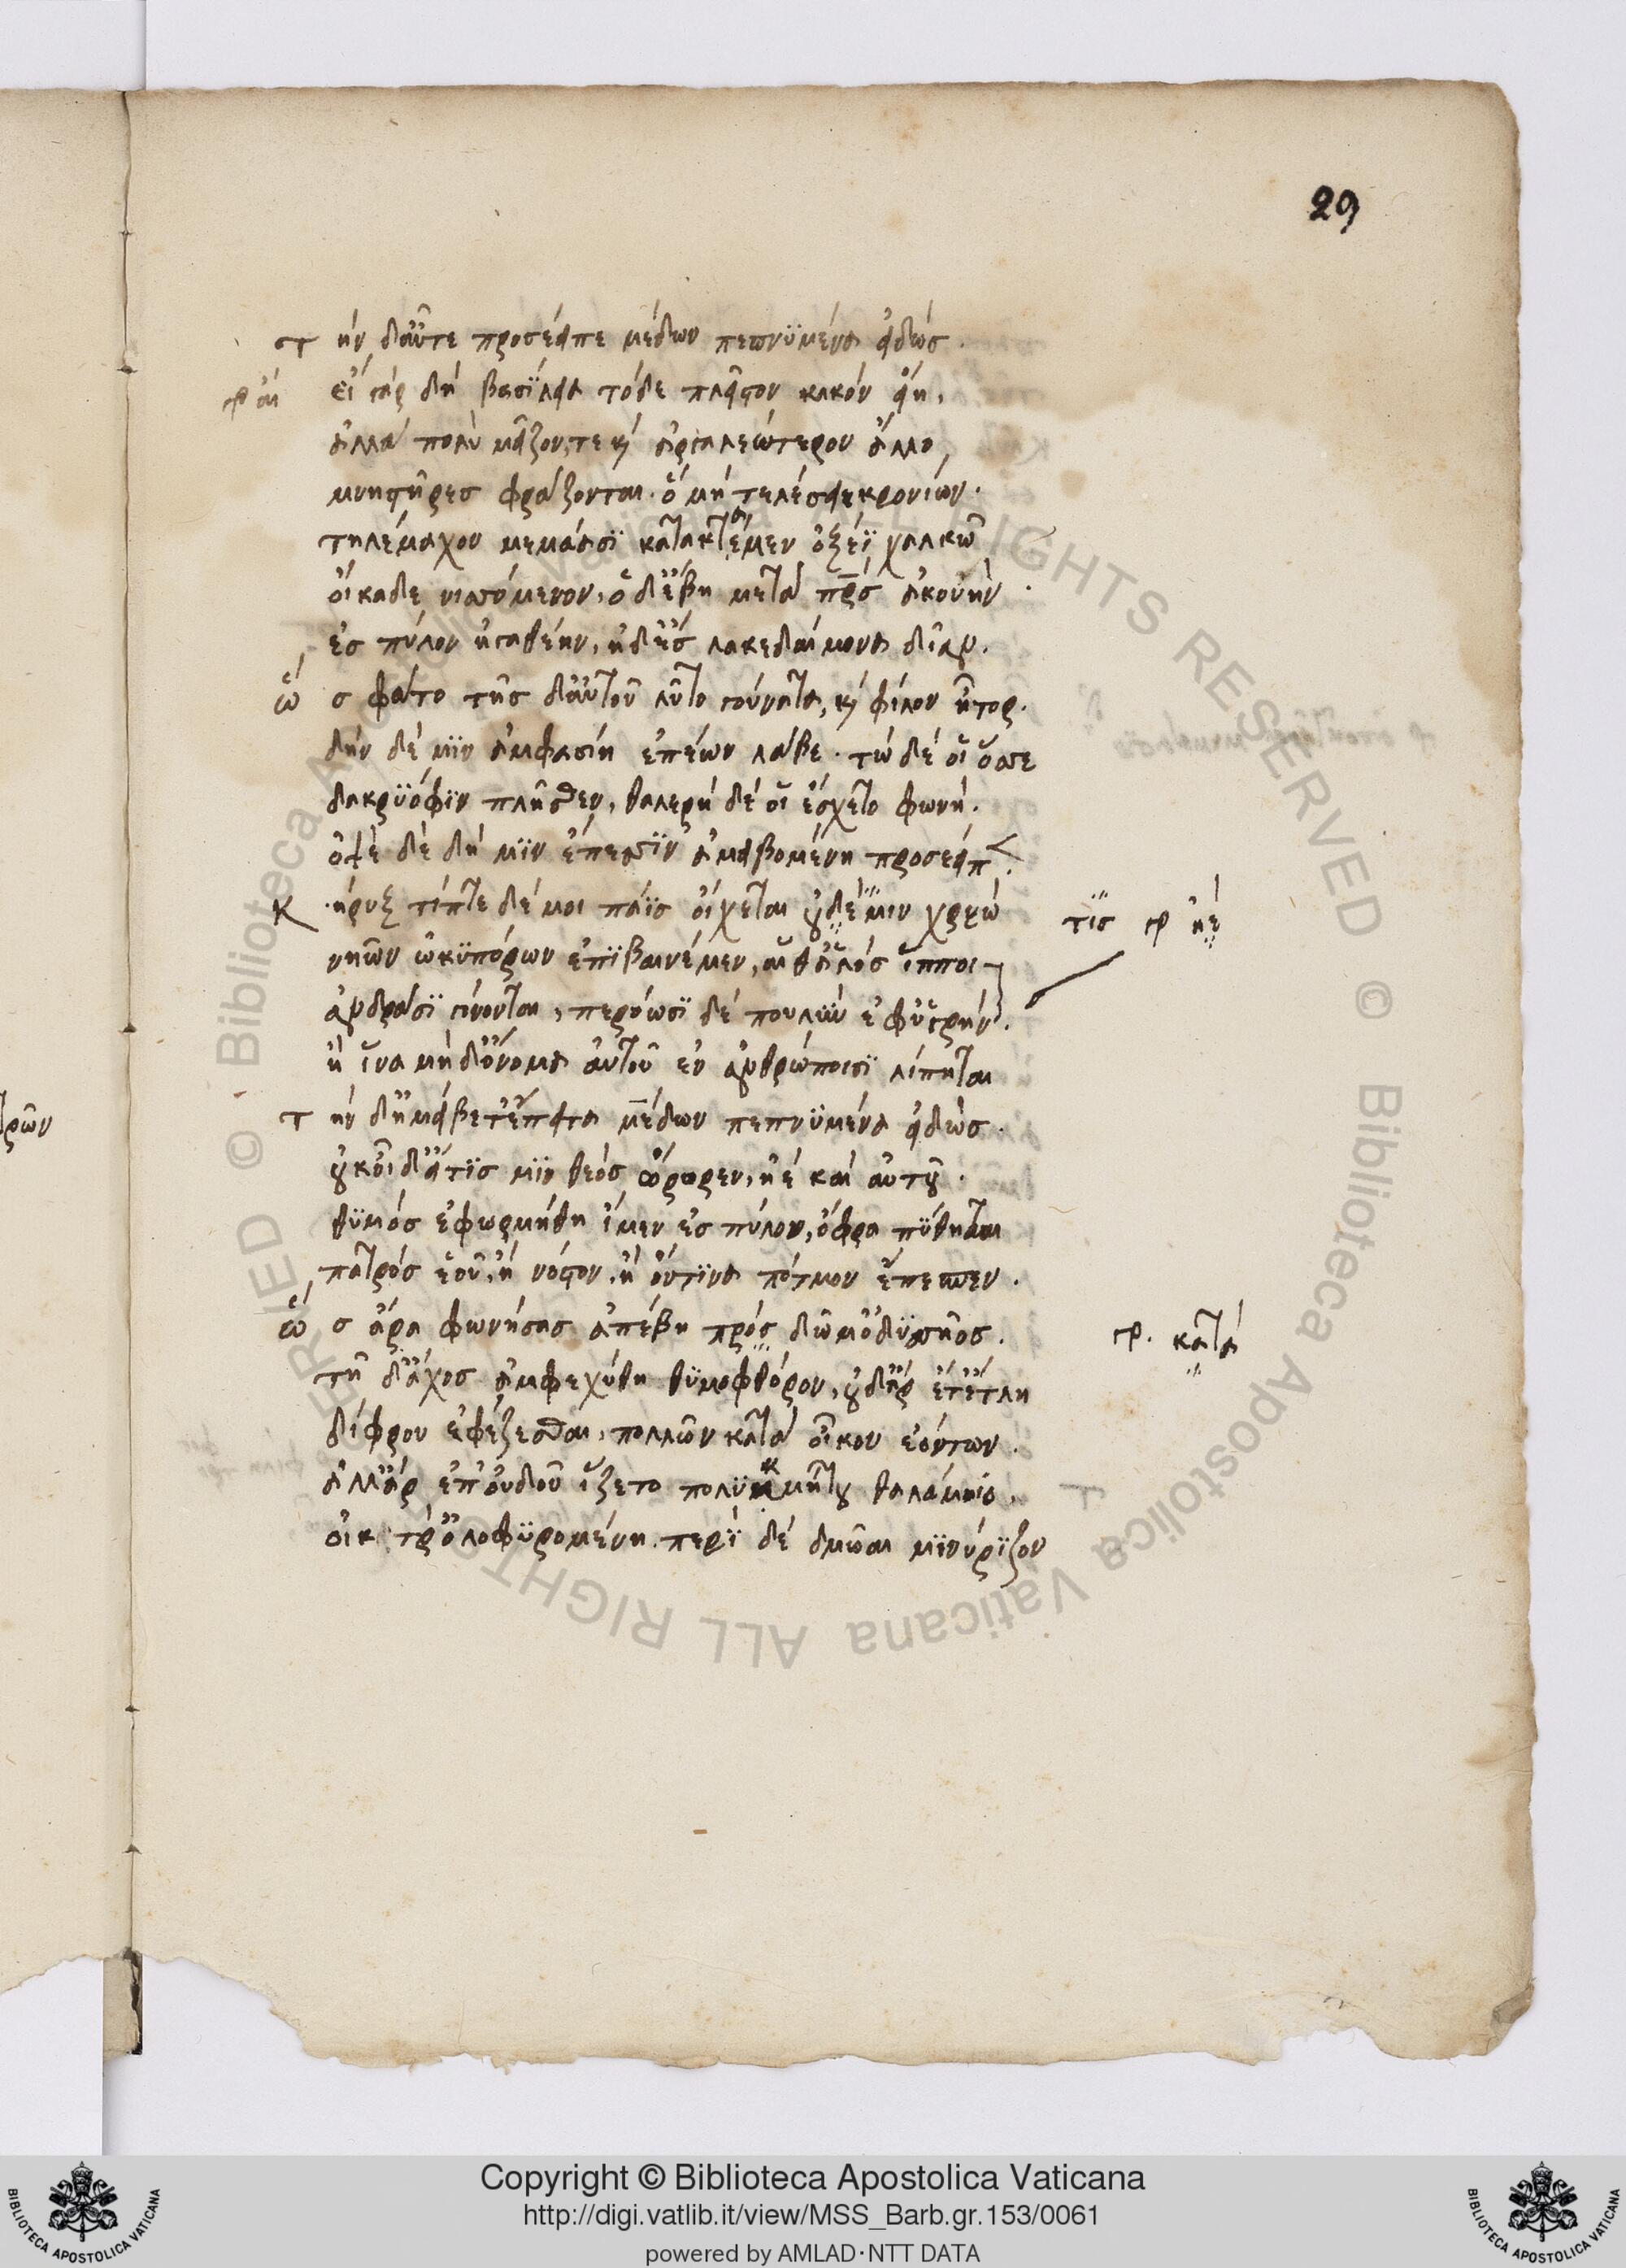 29
τ ὴν δαὖτε προσέειπε μέδων πεπνϋμένα εἰδώς.
γρ αἲ εἰ γὰρ δὴ βασίλεια τόδε πλεῖστον κακὸν εἴη,
ἀλλὰ πολὺ μεῖζον, τε καὶ ἀργαλεώτερον ἄλλο,
μνηστῆρες φράζονται. ὃ μὴ τελέσειε κρονίων.
τηλέμαχον μεμάασϊ κατακτάμεν ὀξέϊ χαλκῶ
οἴκαδε νισσόμενον, ὁ δἔβη μετὰ πρς ἀκουὴν.
ἐς πύλον ἠγαθέην, ἠδἐς λακεδαίμονα δῖαν.
ὣ ς φάτο τῆς δαὐτοῦ λῦτο γούνατα, καὶ φίλον ἦτορ.
δὴν δέ μϊν ἀμφασίη ἐπέων λάβε. τὼ δέ οἱ ὄσσε
δακρϋόφϊν πλῆσθεν, θαλερὴ δέ οἱ ἔσχετο φωνή.
ὀψὲ δὲ δή μϊν ἔπεσσϊν ἀμειβομένη προσέειπε.
κ ήρυξ τίπτε δέ μοι πάϊς οἴχεται οὐδέ μιν χρεὼ τϊς γρ ἠὲ
νηῶν ὠκϋπόρων ἐπϊβαινέμεν, αἵθἁλὸς ἵπποι
ἀνδράσϊ γίνονται, περόωσϊ δὲ πουλὺν ἐφὑγρήν.
ἦ ἵνα μηδὄνομα αὐτοῦ ἐν ἀνθρώποισϊ λίπηται
τ ὴν δἠμείβετἔπειτα μέδων πεπνϋμένα εἰδώς.
οὐκ οἶδεἴτϊς μϊν θεὸς ὤρορεν, ἠὲ καὶ αὐτοῦ.
θϋμὸς ἐφωρμήθη ἴμεν ἐς πύλον, ὄφρα πϋθηται
πατρὸς ἑοῦ, ἢ νόστον, ἢ ὅντϊνα πότμον ἔπεσπεν.
ὣ ς ἄρα φωνήσας ἀπέβη πρὸς δῶμὀδϋσσῆος. γρ. κατὰ
τὴ δἄχος ἀμφεχύθη θϋμοφθόρον, οὐδἄρ ἔτἔτλη
δίφρου ἐφέζεσθαι, πολλῶν κατὰ οἶκον ἐόντων.
ἀλλἄρ ἐπ οὐδοῦ ἷζετο πολϋκμήτου θαλάμοιο.
οἴκτρὀλοφϋρομένη. περὶ δὲ δμῶαι μϊνύρϊζον
τρῶν
Copyright © Biblioteca Apostolica Vaticana
http://digi.vatlib.it/view/MSS_Barb.gr.153/0061
powered by AMLAD·NTT DATA
BIBLIOTECA APOSTOLICA VATICANA
BIBLIOTECA APOSTOLICA VATICANA
© Biblioteca Apostolica Vaticana ALL RIGHTS RESERVED © Biblioteca Apostolica Vaticana ALL RIGHTS RESERVED